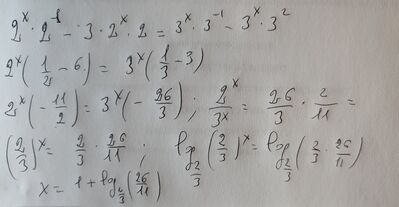 2^x · 2^-1 - 3 · 2^x · 2 = 3^x · 3^-1 - 3^x · 3^2
2^x (1/2 - 6) = 3^x (1/3 - 3)
2^x (- 11/2) = 3^x (- 26/3) ; 2^x/3^x = 26/3 · 2/11 =
(2/3)^x = 2/3 · 26/11 ; log_2/3 (2/3)^x = log_2/3 (2/3 · 26/11)
x = 1 + log_2/3 (26/11)